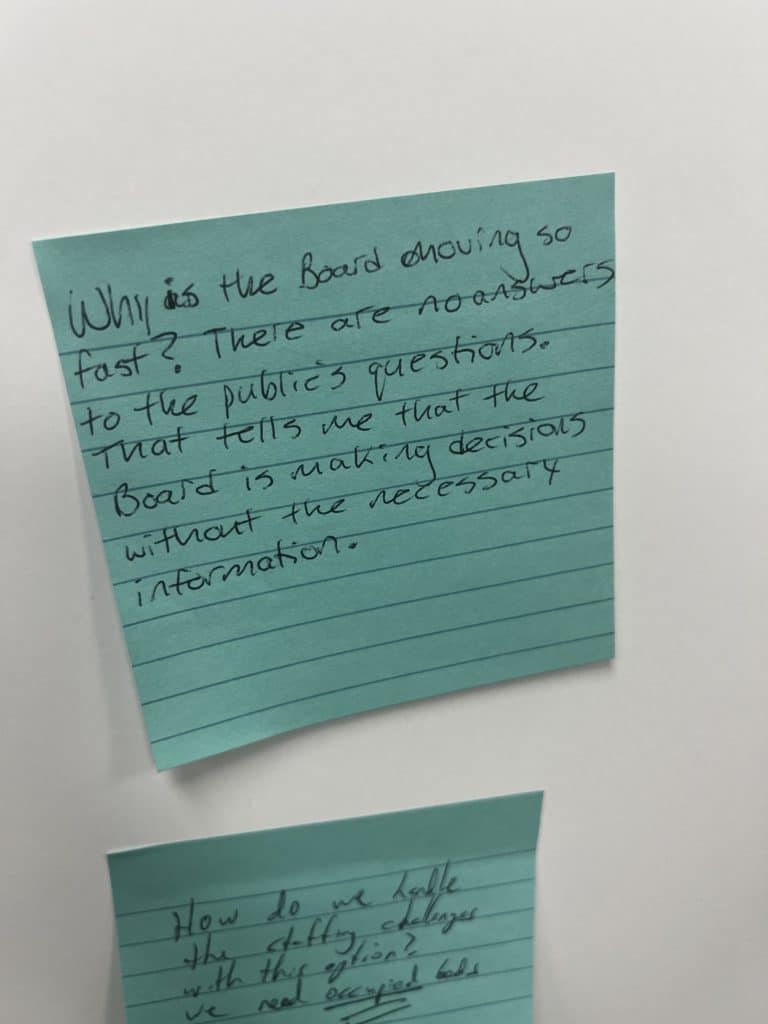 Why is the Board moving so
fast? There are no answers
to the public's questions.
That tells me that the
Board is making decisions
without the necessary
information.
How do we handle
the staffing challenges
with this option?
we need occupied beds